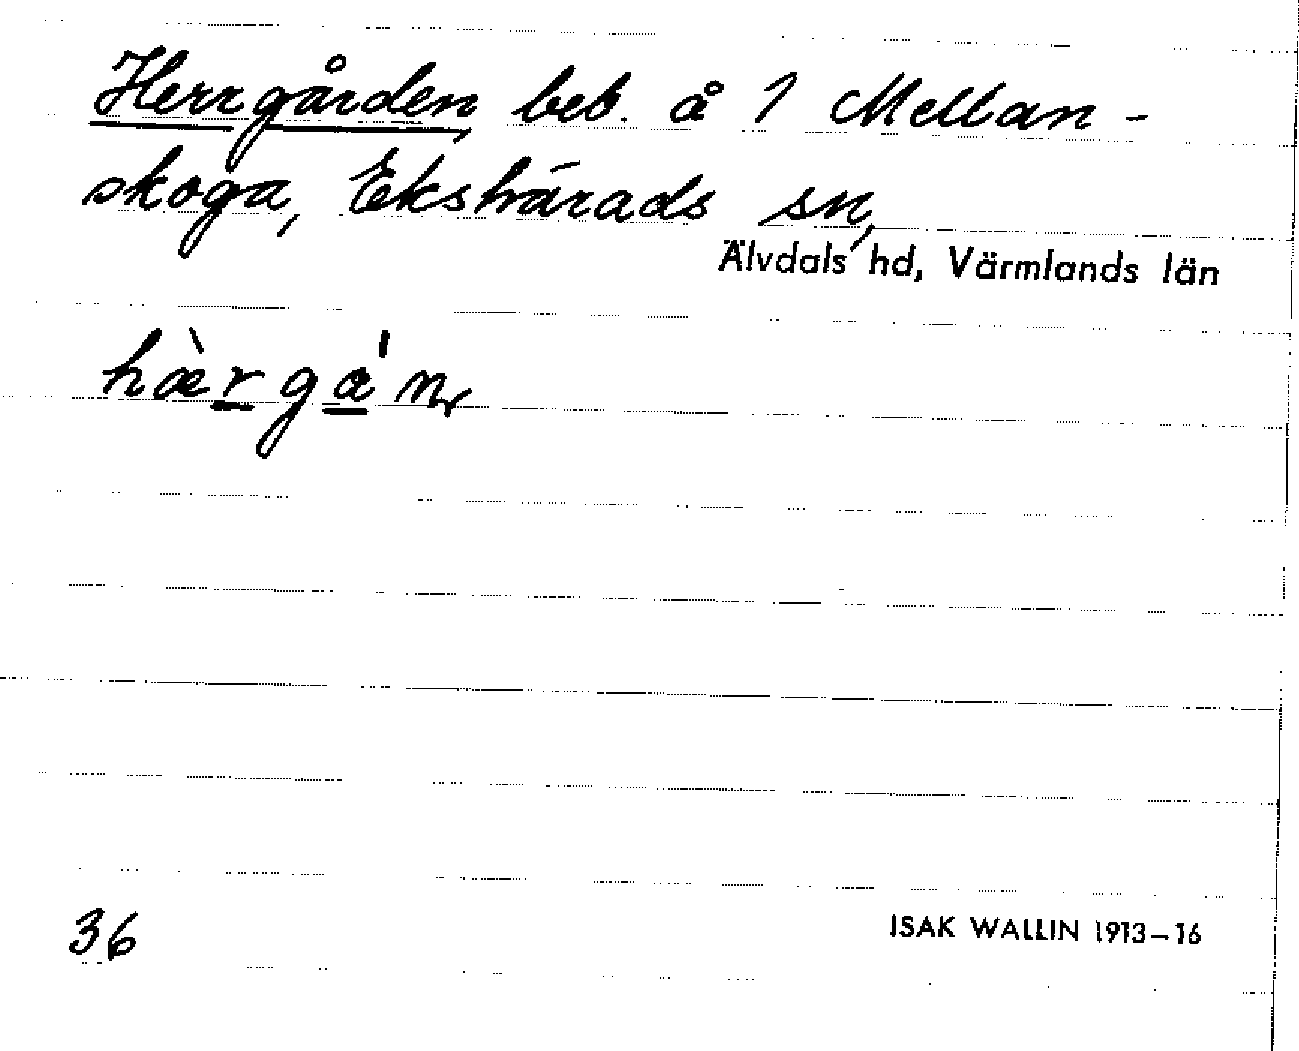 Herrgården, beb. å 1 Mellan-
skoga, Ekshärads sn,
Älvdals hd, Värmlands län
hæ̀rgɑ́ṇ
36
ISAK WALLIN 1913–16